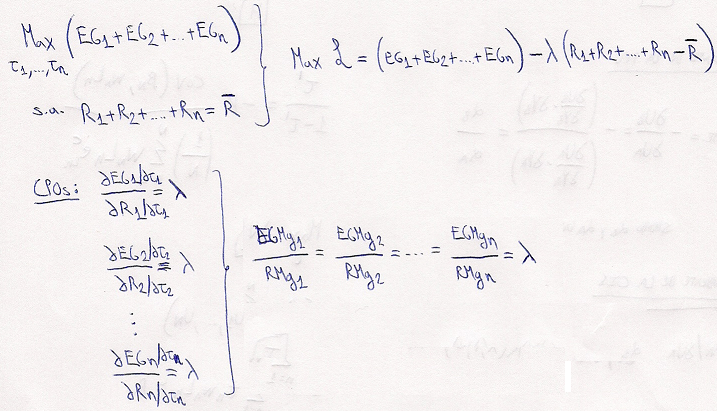 Max (EG₁+EG₂+...+EGₙ)
τ₁,...,τₙ
s.a. R₁+R₂+....+Rₙ = R̄
Max ℒ = (EG₁+EG₂+...+EGₙ) - λ (R₁+R₂+....+Rₙ - R̄)
CPOs: ∂EG₁/∂τ₁ / ∂R₁/∂τ₁ = λ
∂EG₂/∂τ₂ / ∂R₂/∂τ₂ = λ
⋮
∂EGₙ/∂τₙ / ∂Rₙ/∂τₙ = λ
EGMg₁ / RMg₁ = EGMg₂ / RMg₂ = ... = EGMgₙ / RMgₙ = λ